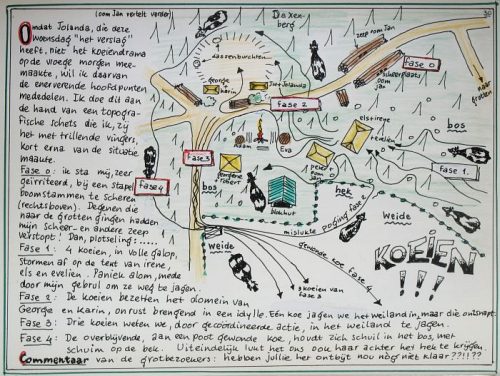 (oom Jan vertelt verder)
30
Omdat Jolanda, die deze
woensdag "het verslag"
heeft, niet het koeiendrama
op de vroege morgen mee-
maakte, wil ik daarvan
de enerverende hoofdpunten
mededelen. Ik doe dit aan
de hand van een topogra-
fische schets die ik, zij
het met trillende vingers,
kort erna van de situatie
maakte.
Fase 0: ik sta mij, zeer
geïrriteerd, bij een stapel
boomstammen te scheren
(rechtsboven). Degenen die
naar de grotten gingen hadden
mijn scheer- en andere zeep
verstopt! Dan, plotseling:.....
Fase 1: 4 koeien, in volle galop,
stormen af op de tent van irene,
els en evelien. Paniek alom, mede
door mijn gebrul om ze weg te jagen.
Fase 2: De koeien bezetten het domein van
George en Karin, onrust brengend in een idylle. Eén koe jagen we het weiland in, maar die ontsnapt.
Fase 3: Drie koeien weten we, door gecoördineerde actie, in het weiland te jagen.
Fase 4: De overblijvende, aan een poot gewonde koe, houdt zich schuil in het bos, met
schuim op de bek. Uiteindelijk lukt het ons ook haar achter het hek te krijgen.
Commentaar van de grotbezoekers: hebben jullie het ontbijt nou nòg niet klaar??!!??
Dassenberg
dassenburchten
zeep oom jan
Fase 0
scheerplaats
oom jan
naar
grotten
george
karin
Jolanda
Fase 2
els+irene
evelien
Eva
Fase 3
Fase 4
Fase 1
bos
peter
oom jan
robert
blokhut
bos
hek
mislukte poging fase 2
Weide
Weide
gewonde koe fase 4
3 koeien van
fase 3
KOEIEN
!!!